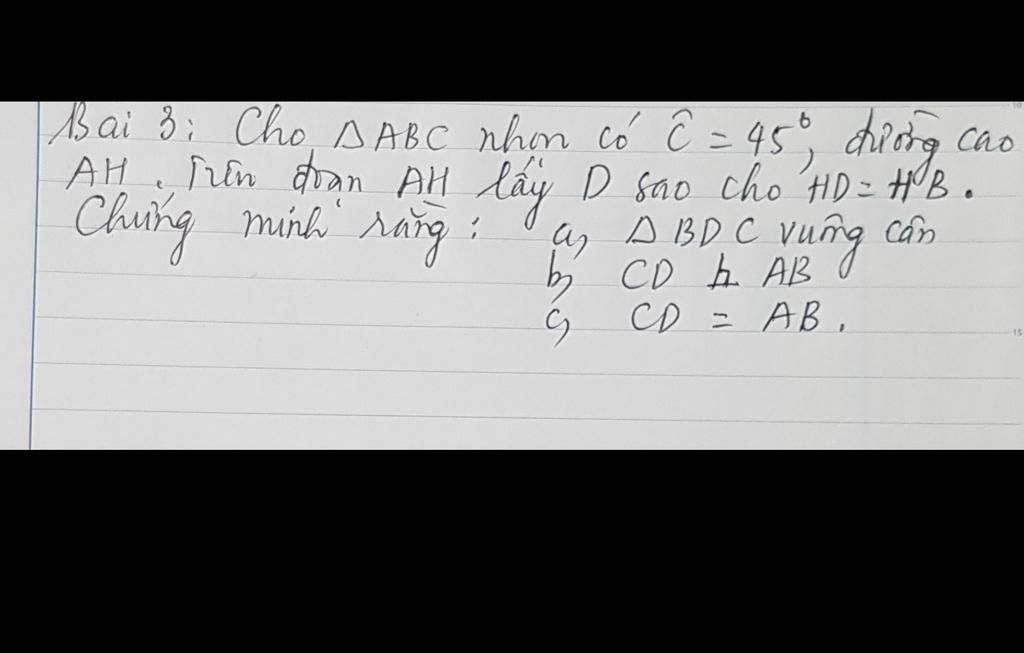 Bài 3: Cho △ABC nhọn có Ĉ = 45°, đường cao
AH. Trên đoạn AH lấy D sao cho HD = HB.
Chứng minh rằng: a, △BDC vuông cân
b, CD ⊥ AB
c, CD = AB.